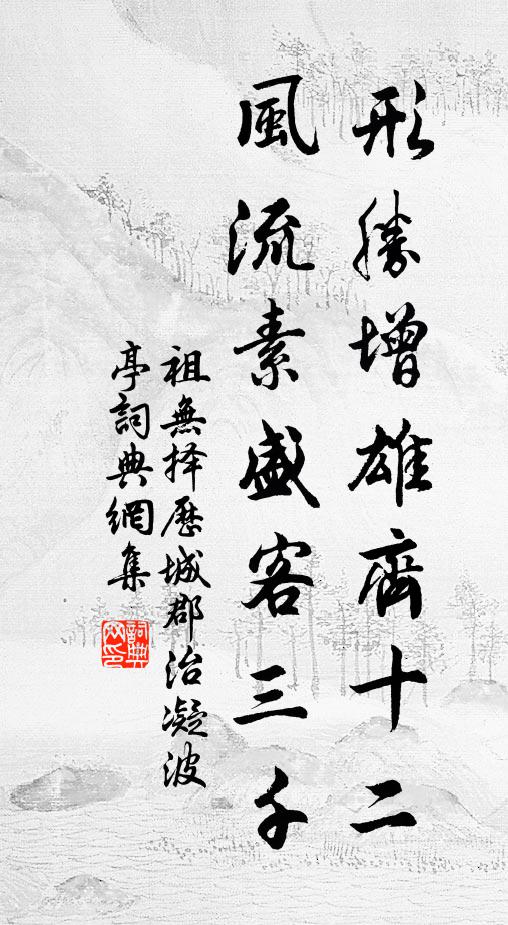 形勝增雄齊十二
風流素盛客三千
祖無择歷城郡治凝波
亭詞典網集
詞典
网印